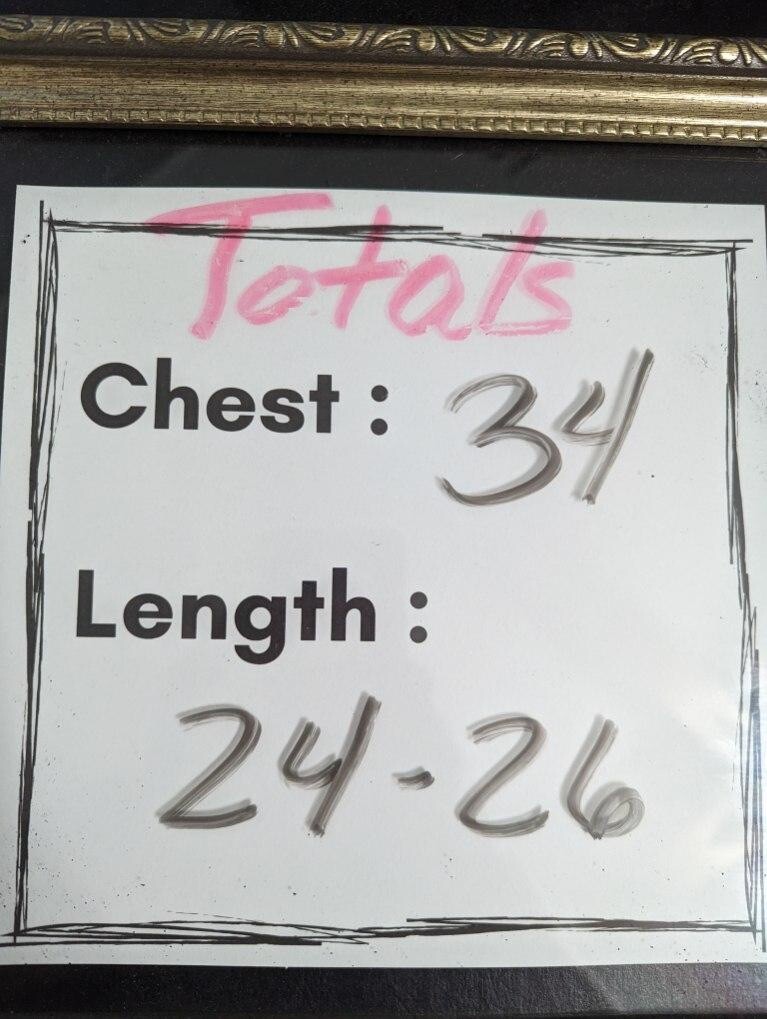 Totals
Chest : 34
Length :
24-26